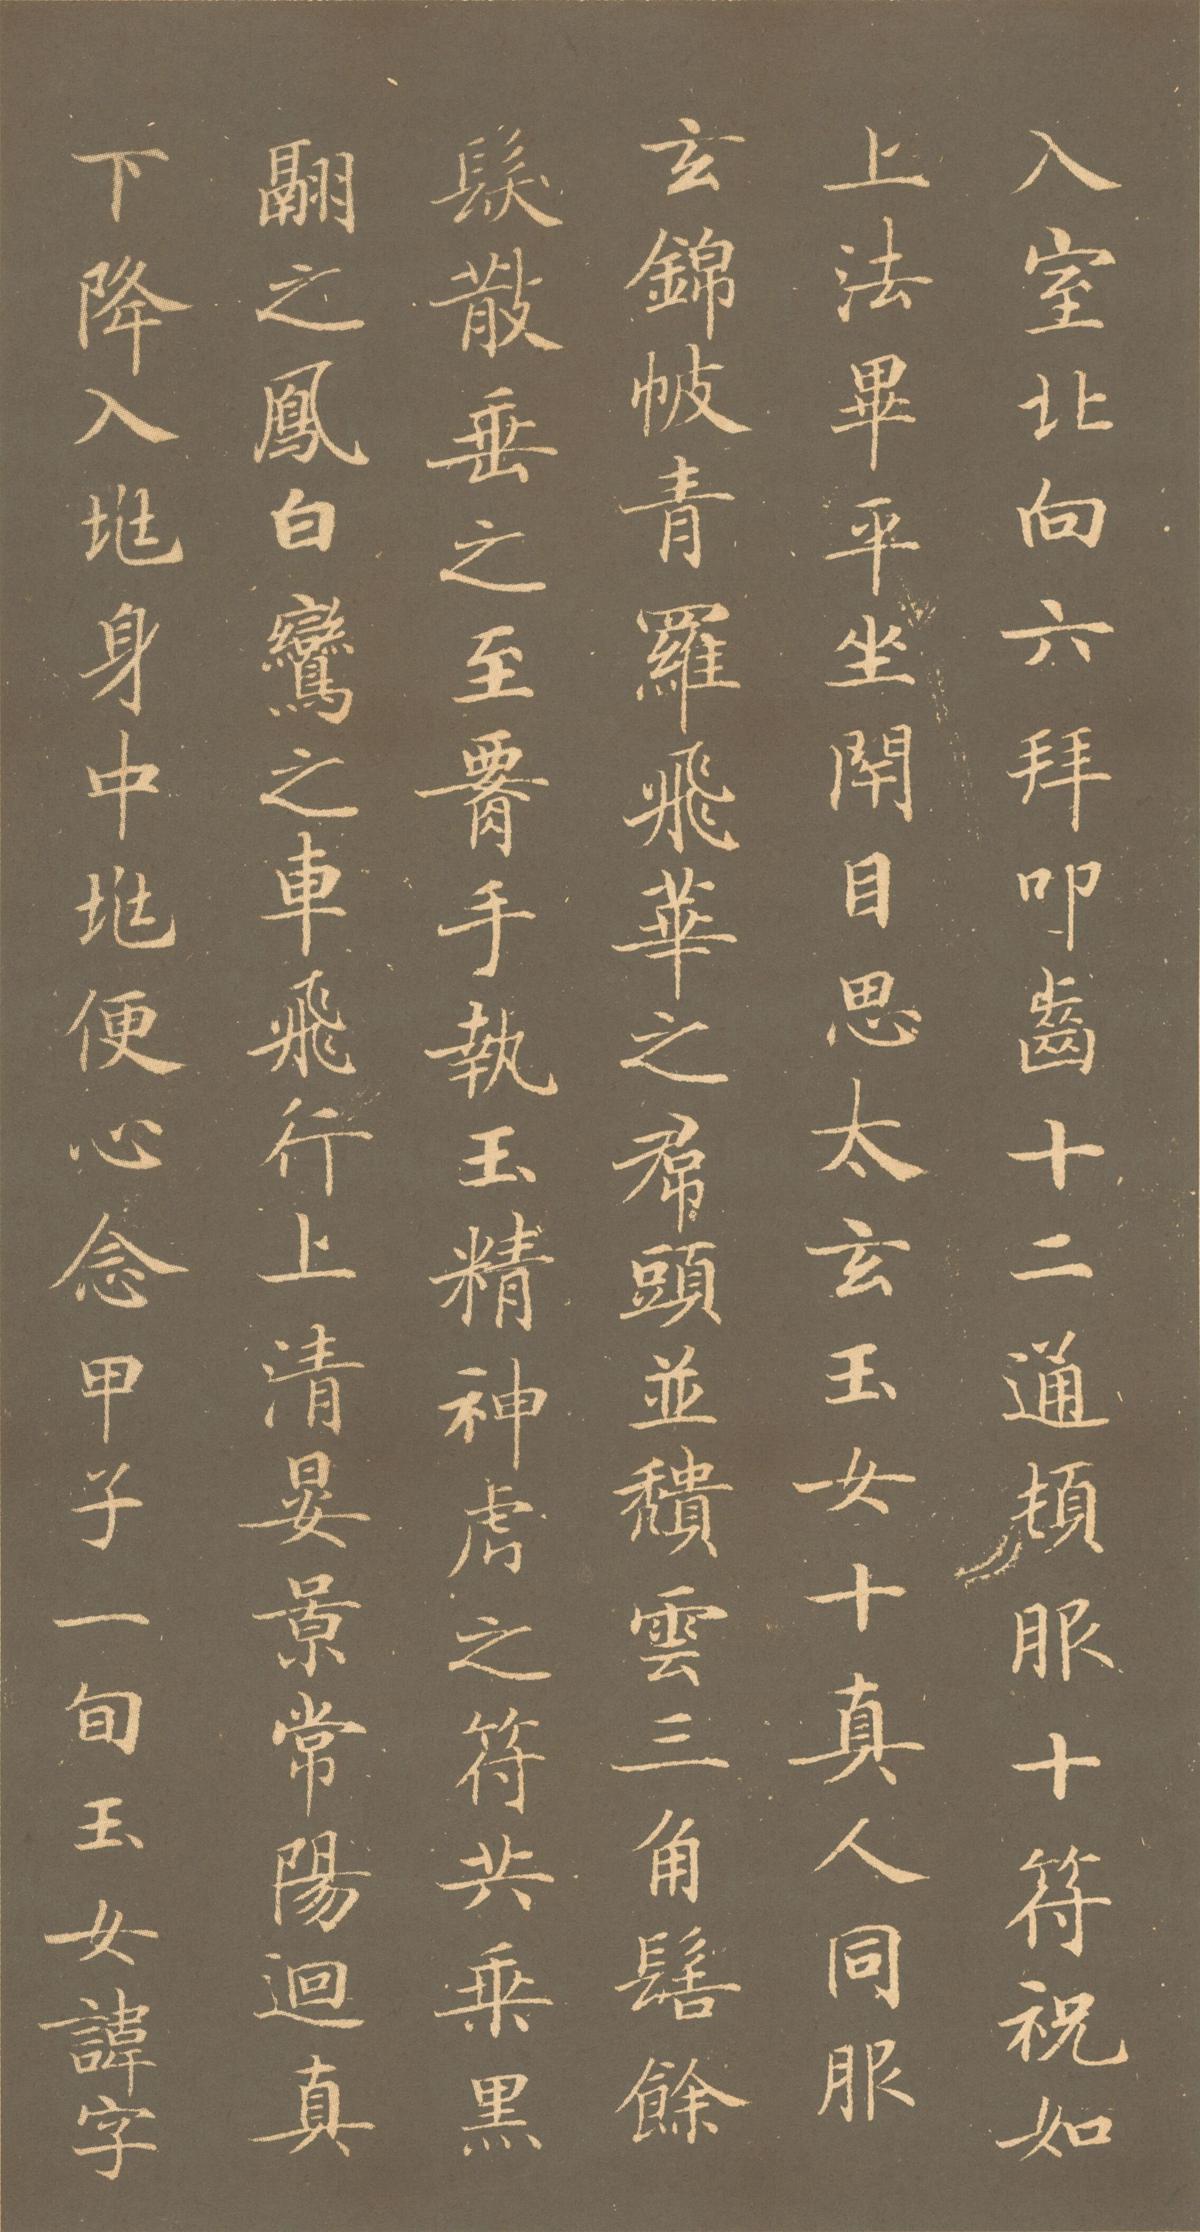 入室北向六拜叩齒十二通頓服十符祝如
上法畢平坐閇目思太玄玉女十真人同服
玄錦帔青羅飛華之帬頭並穨雲三角髻餘
髮散垂之至腰手執玉精神虎之符共乘黑
翮之鳳白鸞之車飛行上清晏景常陽迴真
下降入兆身中兆便心念甲子一旬玉女諱字